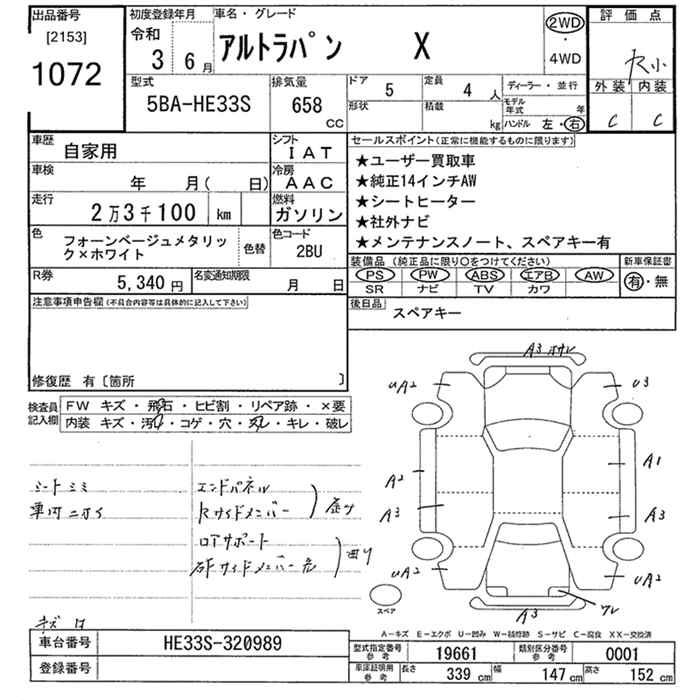 出品番号
[2153]
1072
初度登録年月
令和
3 6月
車名・グレード
アルトラパン X
2WD
・
4WD
評価点
外装 内装
C C
型式
5BA-HE33S
排気量
658 CC
ドア
5
定員
4 人
形状
積載
kg
ディーラー・並行
モデル年式 年
ハンドル 左・右
車歴
自家用
シフト
IAT
車検
年 月( 日)
冷房
AAC
走行
2万3千100 km
燃料
ガソリン
色
フォーンベージュメタリック×ホワイト
色替
色コード
2BU
R券
5,340 円
名変通知期限
月 日
セールスポイント(正常に機能するものに限ります)
★ユーザー買取車
★純正14インチAW
★シートヒーター
★社外ナビ
★メンテナンスノート、スペアキー有
装備品 (純正品に限り○をつけてください)
PS PW ABS エアB AW
SR ナビ TV カワ
新車保証書
有・無
後日品
スペアキー
注意事項申告欄(不具合内容等は具体的に記入して下さい)
修復歴 有〔箇所 〕
検査員記入欄
FW キズ・飛石・ヒビ割・リペア跡・×要
内装 キズ・汚レ・コゲ・穴・スレ・キレ・破レ
シートシミ
車内ニオイ
エンドパネル
Rサイドメンバー
ロアサポート
キズ
A3
UA2
U3
A2
A1
A3
A3
UA2
UA2
A3
スペア
A-キズ E-エクボ U-凹み W-補修跡 S-サビ C-腐食 XX-交換済
車台番号
HE33S-320989
登録番号
型式指定番号 参考
19661
類別区分番号 参考
0001
車庫証明用 参考
長さ 339 cm
幅 147 cm
高さ 152 cm